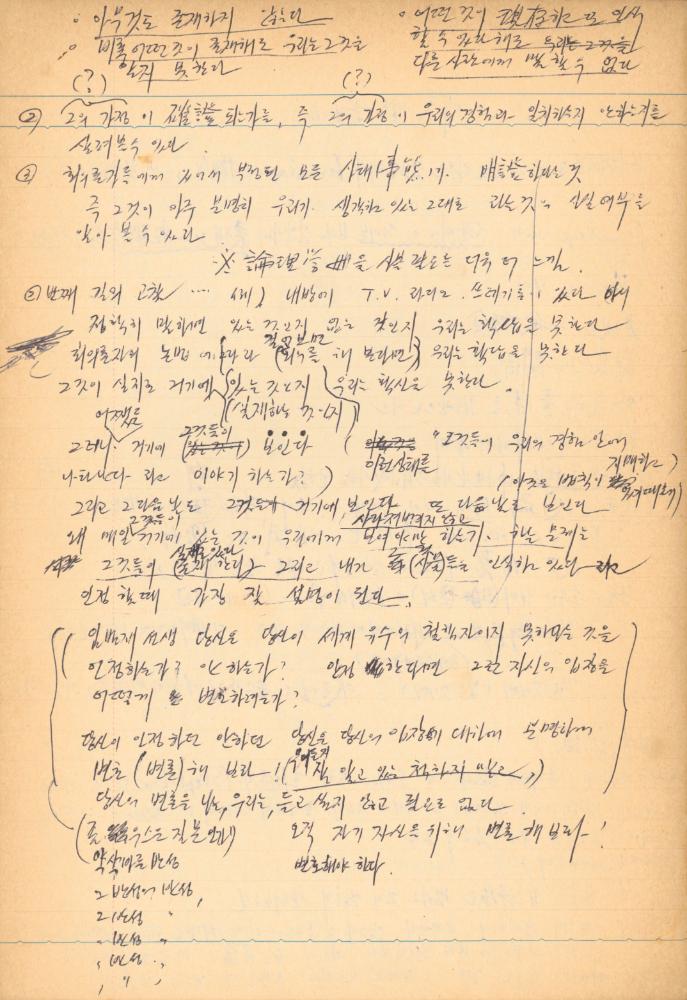 ○ 아무것도 존재하지 않는다
○ 비록 어떤것이 존재해도 우리는 그것을
알지 못한다
○ 어떤 것이 現存하고 또 인식
할 수 있다 해도 우리는 그것을
다른 사람에게 말할 수 없다
(?) (?)
② 그의 가정이 되는가를, 즉 그의 가정이 우리의 경험과 일치하는지 안하는지를
살펴볼수 있다.
③ 회의론자들에게 있어서 부정된 모든 사태(事態)가 하다는 것
즉 그것이 아주 분명히 우리가 생각하고 있는 그대로 라는것의 진실 여부를
알아 볼 수 있다
※ 論理学 을 필요는 더욱 더 느낌.
②번째 길의 고찰 .... 예) 내방에 T.V. 라디오. 쓰레기통이 있다
정확히 말하면 있는 것인지 없는 것인지 우리는 확답을 못한다
회의론자의 논법에 따라 (회의를 해 본다면) 우리는 확답을 못한다
그것이 실지로 거기에 있는것인지 우리는 확신을 못한다.
(실재하는 것인지)
어쨌든 그것들이
그러나 거기에 보인다 ( "그것들이 우리의 경험 안에
이런상태를
나타난다 라고 이야기 하는가?)
그리고 그 다음날도 그것들이 거기에 보인다 또 다음날도 보인다
사라져버리지 않고
왜 매일 거기에 있는 것이 우리에게 보여야만 하는가. 하는 문제는
그것들이 그리고 내가 (사물)들을 인식하고 있다 라고
인정 할때 가장 잘 설명이 된다.
임범재 선생 당신은 당신이 세계 유수의 철학자이지 못하다는 것을
인정하는가? 안 하는가? 인정 한다면 그런 자신의 입장을
어떻게 변호하려는가?
당신이 인정하던 안하던 당신은 당신의 입장에 대하여 분명하게
변호(변론)해 보라! ( 잘 알고 있는 척하지 말고,)
당신의 변호를 나는, 우리는, 듣고 싶지 않고 필요로 없다.
(좀 우스운 질문인가) 오직 자기 자신을 위해 변호해 보라!
변호해야 한다.
반성
그 반성의 반성,
그 반성 〃
〃 반성 〃
, 반성 〃,
, 〃 ,